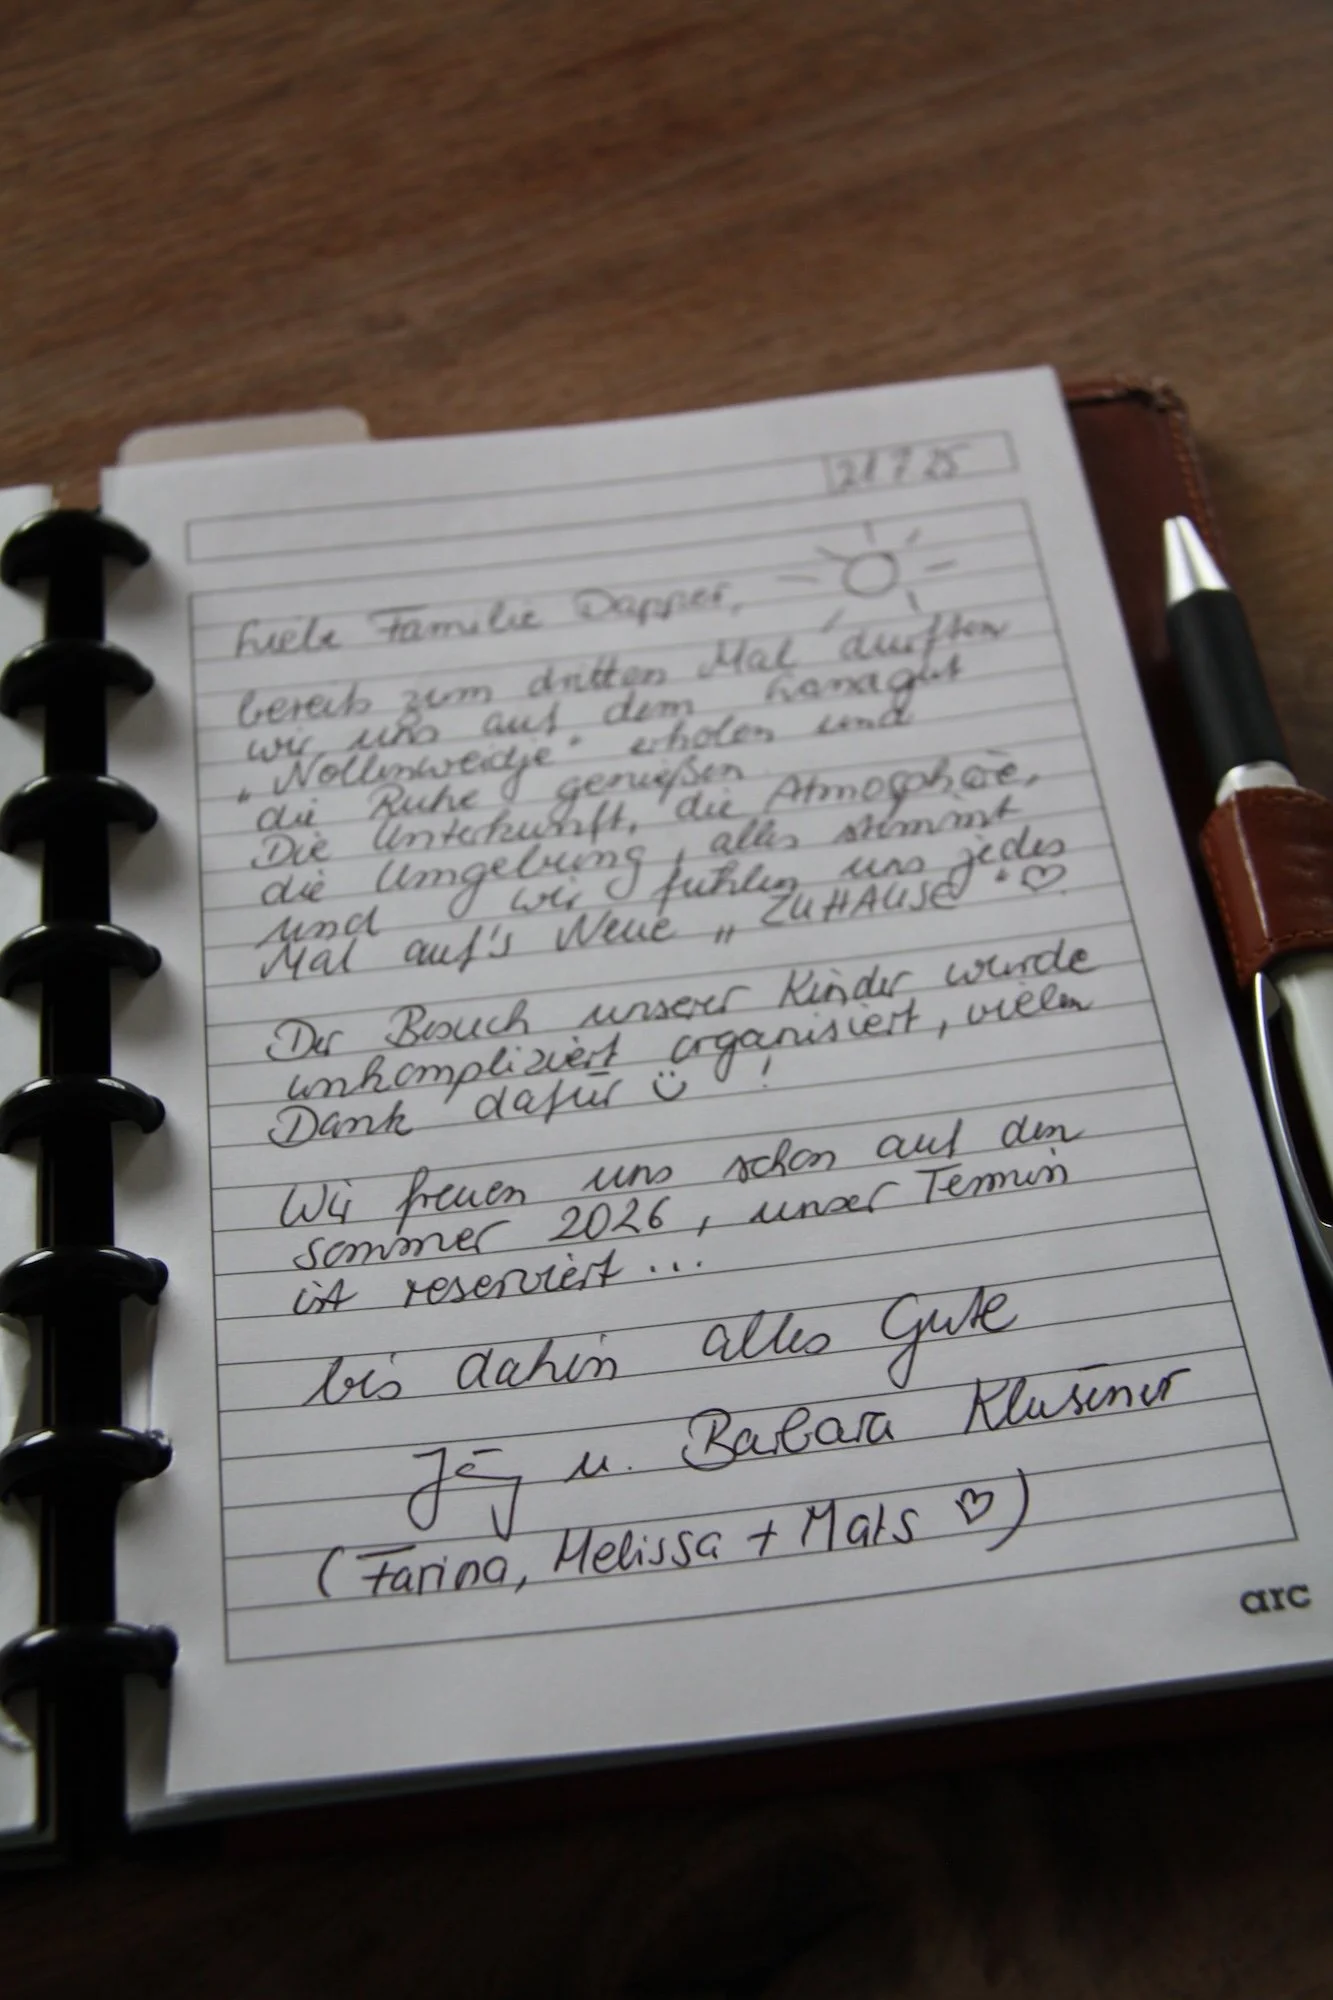 21.7.25
Liebe Familie Dapper,
bereits zum dritten Mal durften
wir uns auf dem Landgut
„Nollenweidje" erholen und
die Ruhe genießen.
Die Unterkunft, die Atmosphäre,
die Umgebung, alles stimmt
und wir fühlen uns jedes
Mal auf's Neue „ZUHAUSE" ♡
Der Besuch unserer Kinder wurde
unkompliziert organisiert, vielen
Dank dafür ☺ !
Wir freuen uns schon auf den
Sommer 2026, unser Termin
ist reserviert ...
bis dahin alles Gute
Jörg u. Barbara Klusener
(Farina, Melissa + Mats ♡)
arc